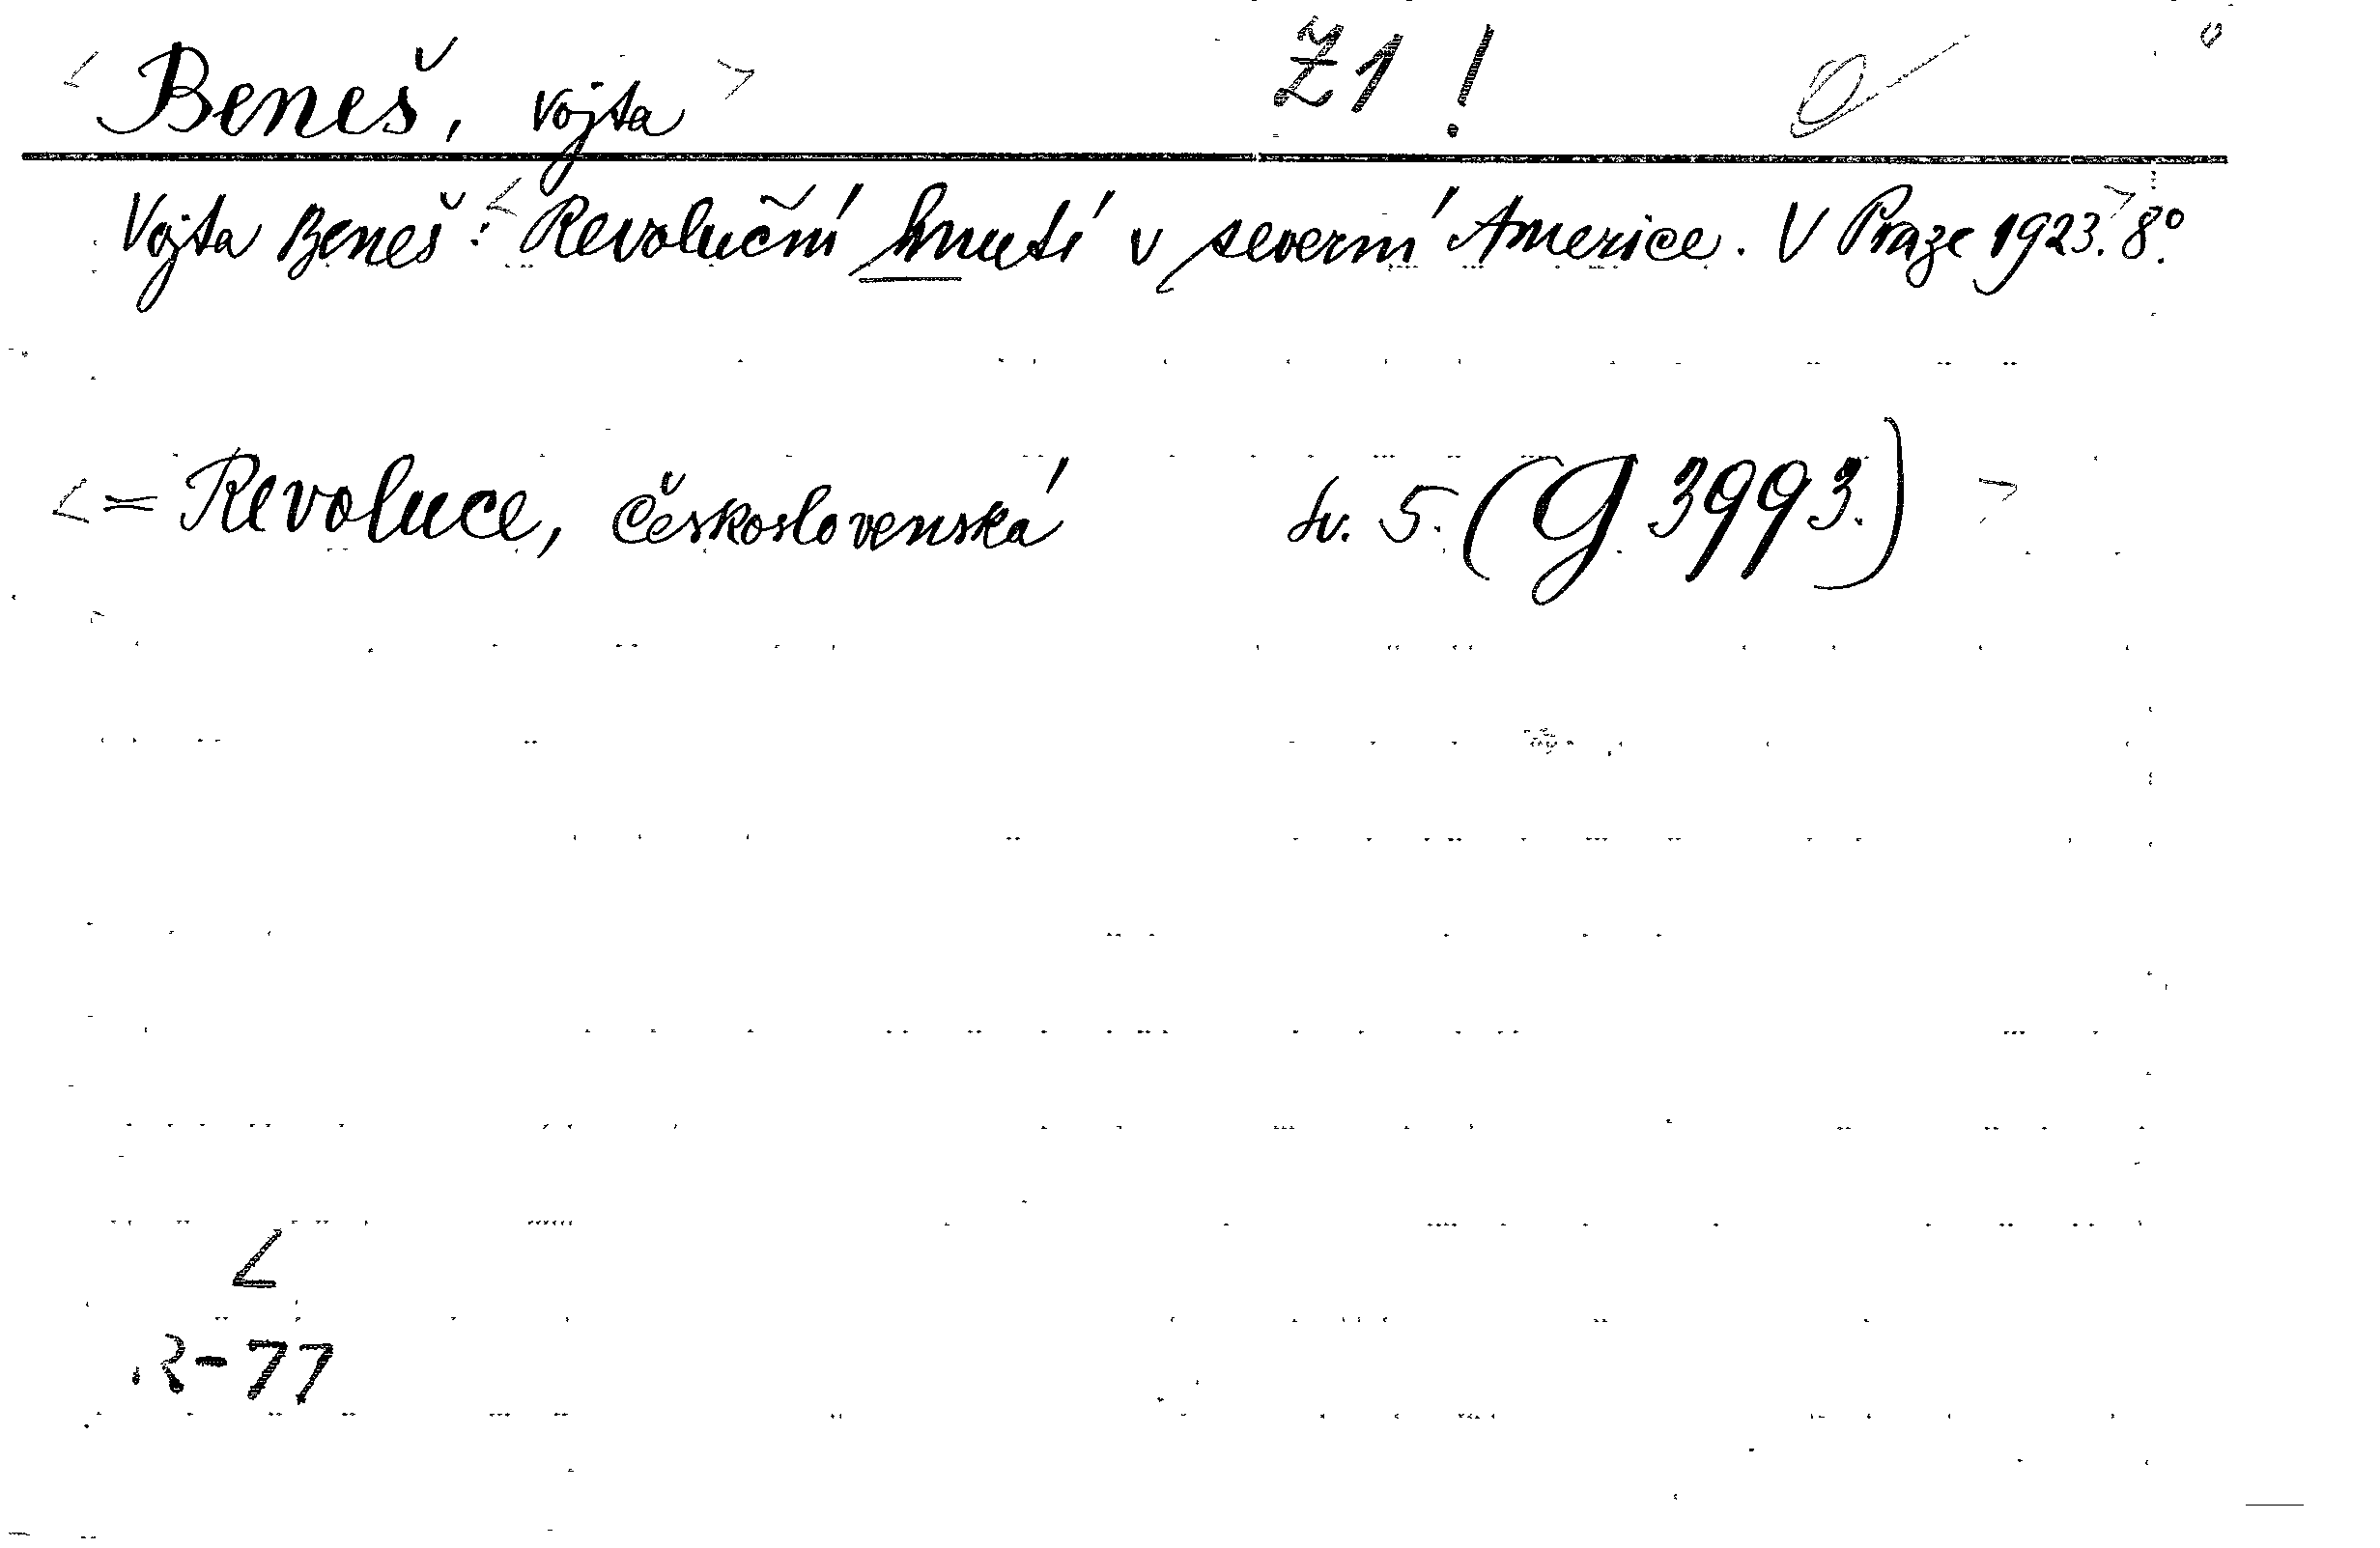 < Beneš, Vojta > Ž1!
Vojta Beneš: < Revoluční hnutí v severní Americe. V Praze 1923. > 8°.
< = Revoluce, Československá Sv. 5. (G 3993.) >
L
R-77